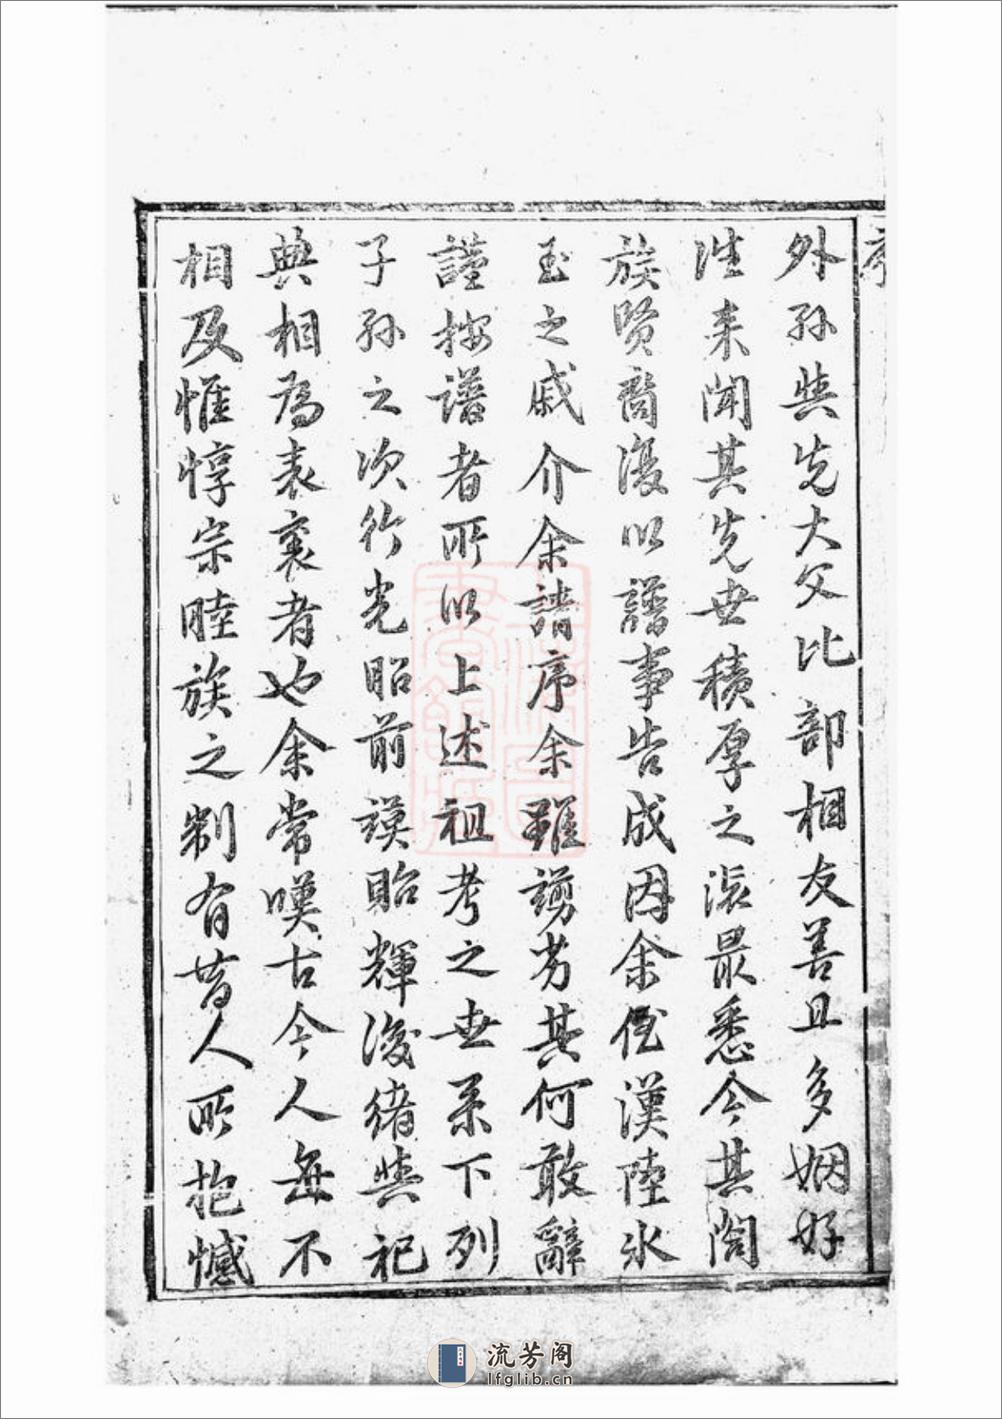 序
外孫與先大父比部相友善且多姻好
往來聞其先世積厚之流最悉今其閤
族賢裔復以譜事告成因余侄漢陸冰
玉之戚介余請序余雖謭劣其何敢辭
謹按譜者所以上述祖考之世系下列
子孫之次行光昭前謨貽輝後緒與祀
典相為表裏者也余常嘆古今人每不
相及惟惇宗睦族之制有昔人所抱憾
流芳阁
lfglib.cn